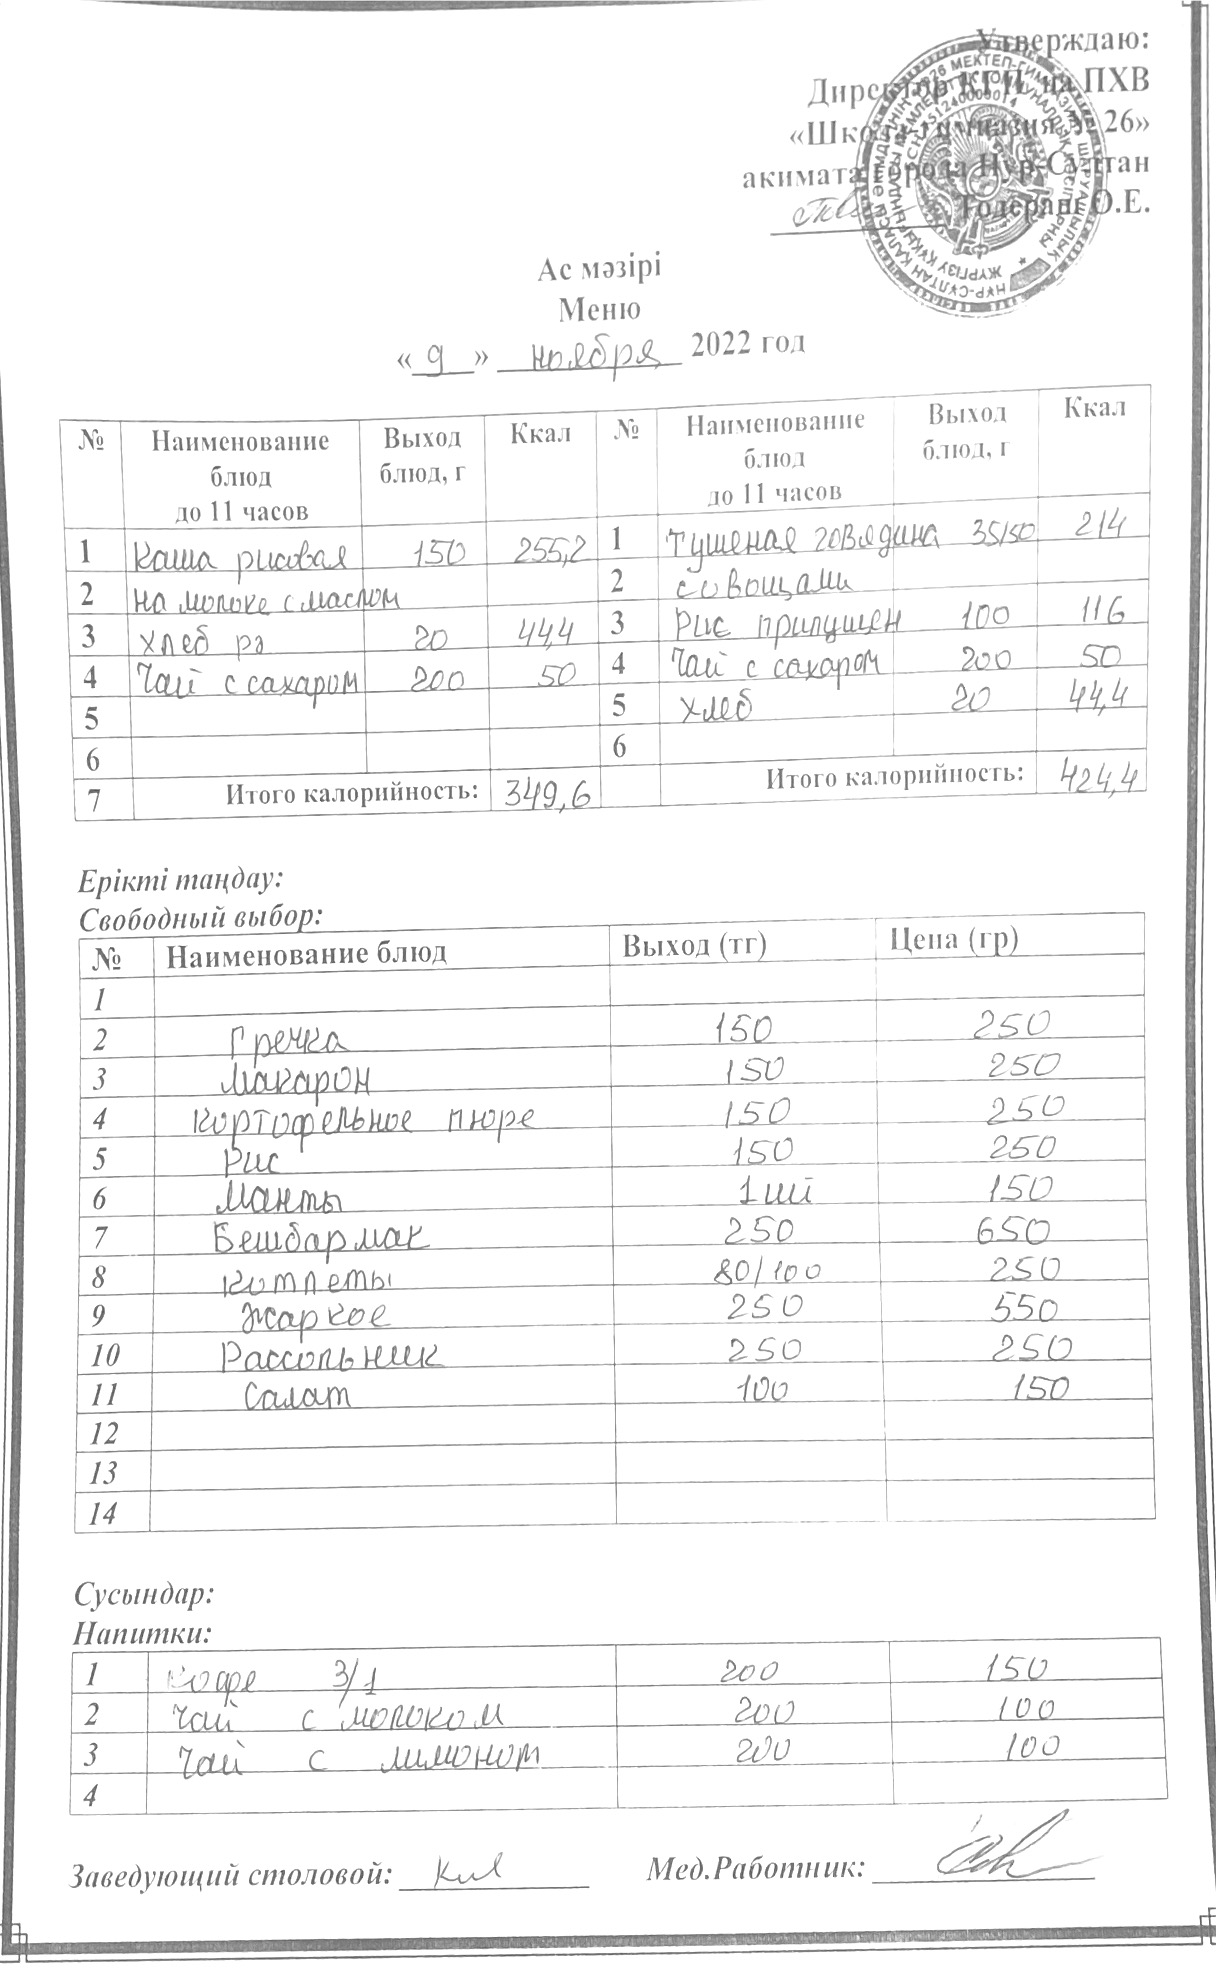 Утверждаю:
Директор КГП на ПХВ
«Школа-гимназия № 26»
акимата города Нур-Султан
Тодераш О.Е.
Ас мәзірі
Меню
«9» ноября 2022 год
№ Наименование блюд до 11 часов Выход блюд, г Ккал № Наименование блюд до 11 часов Выход блюд, г Ккал
1 Каша рисовая 150 255,2 1 Тушеная говядина 35/50 214
2 на молоке с маслом 2 с овощами
3 хлеб рз 20 44,4 3 Рис припущен 100 116
4 Чай с сахаром 200 50 4 Чай с сахаром 200 50
5 5 хлеб 20 44,4
6 6
7 Итого калорийность: 349,6 Итого калорийность: 424,4
Ерікті таңдау:
Свободный выбор:
№ Наименование блюд Выход (тг) Цена (гр)
1
2 Гречка 150 250
3 Макарон 150 250
4 Кортофельное пюре 150 250
5 Рис 150 250
6 Манты 1 шт 150
7 Бешбармак 250 650
8 Котлеты 80/100 250
9 Жаркое 250 550
10 Рассольник 250 250
11 Салат 100 150
12
13
14
Сусындар:
Напитки:
1 Кофе 3/1 200 150
2 Чай с молоком 200 100
3 Чай с лимоном 200 100
4
Заведующий столовой: Мед.Работник: